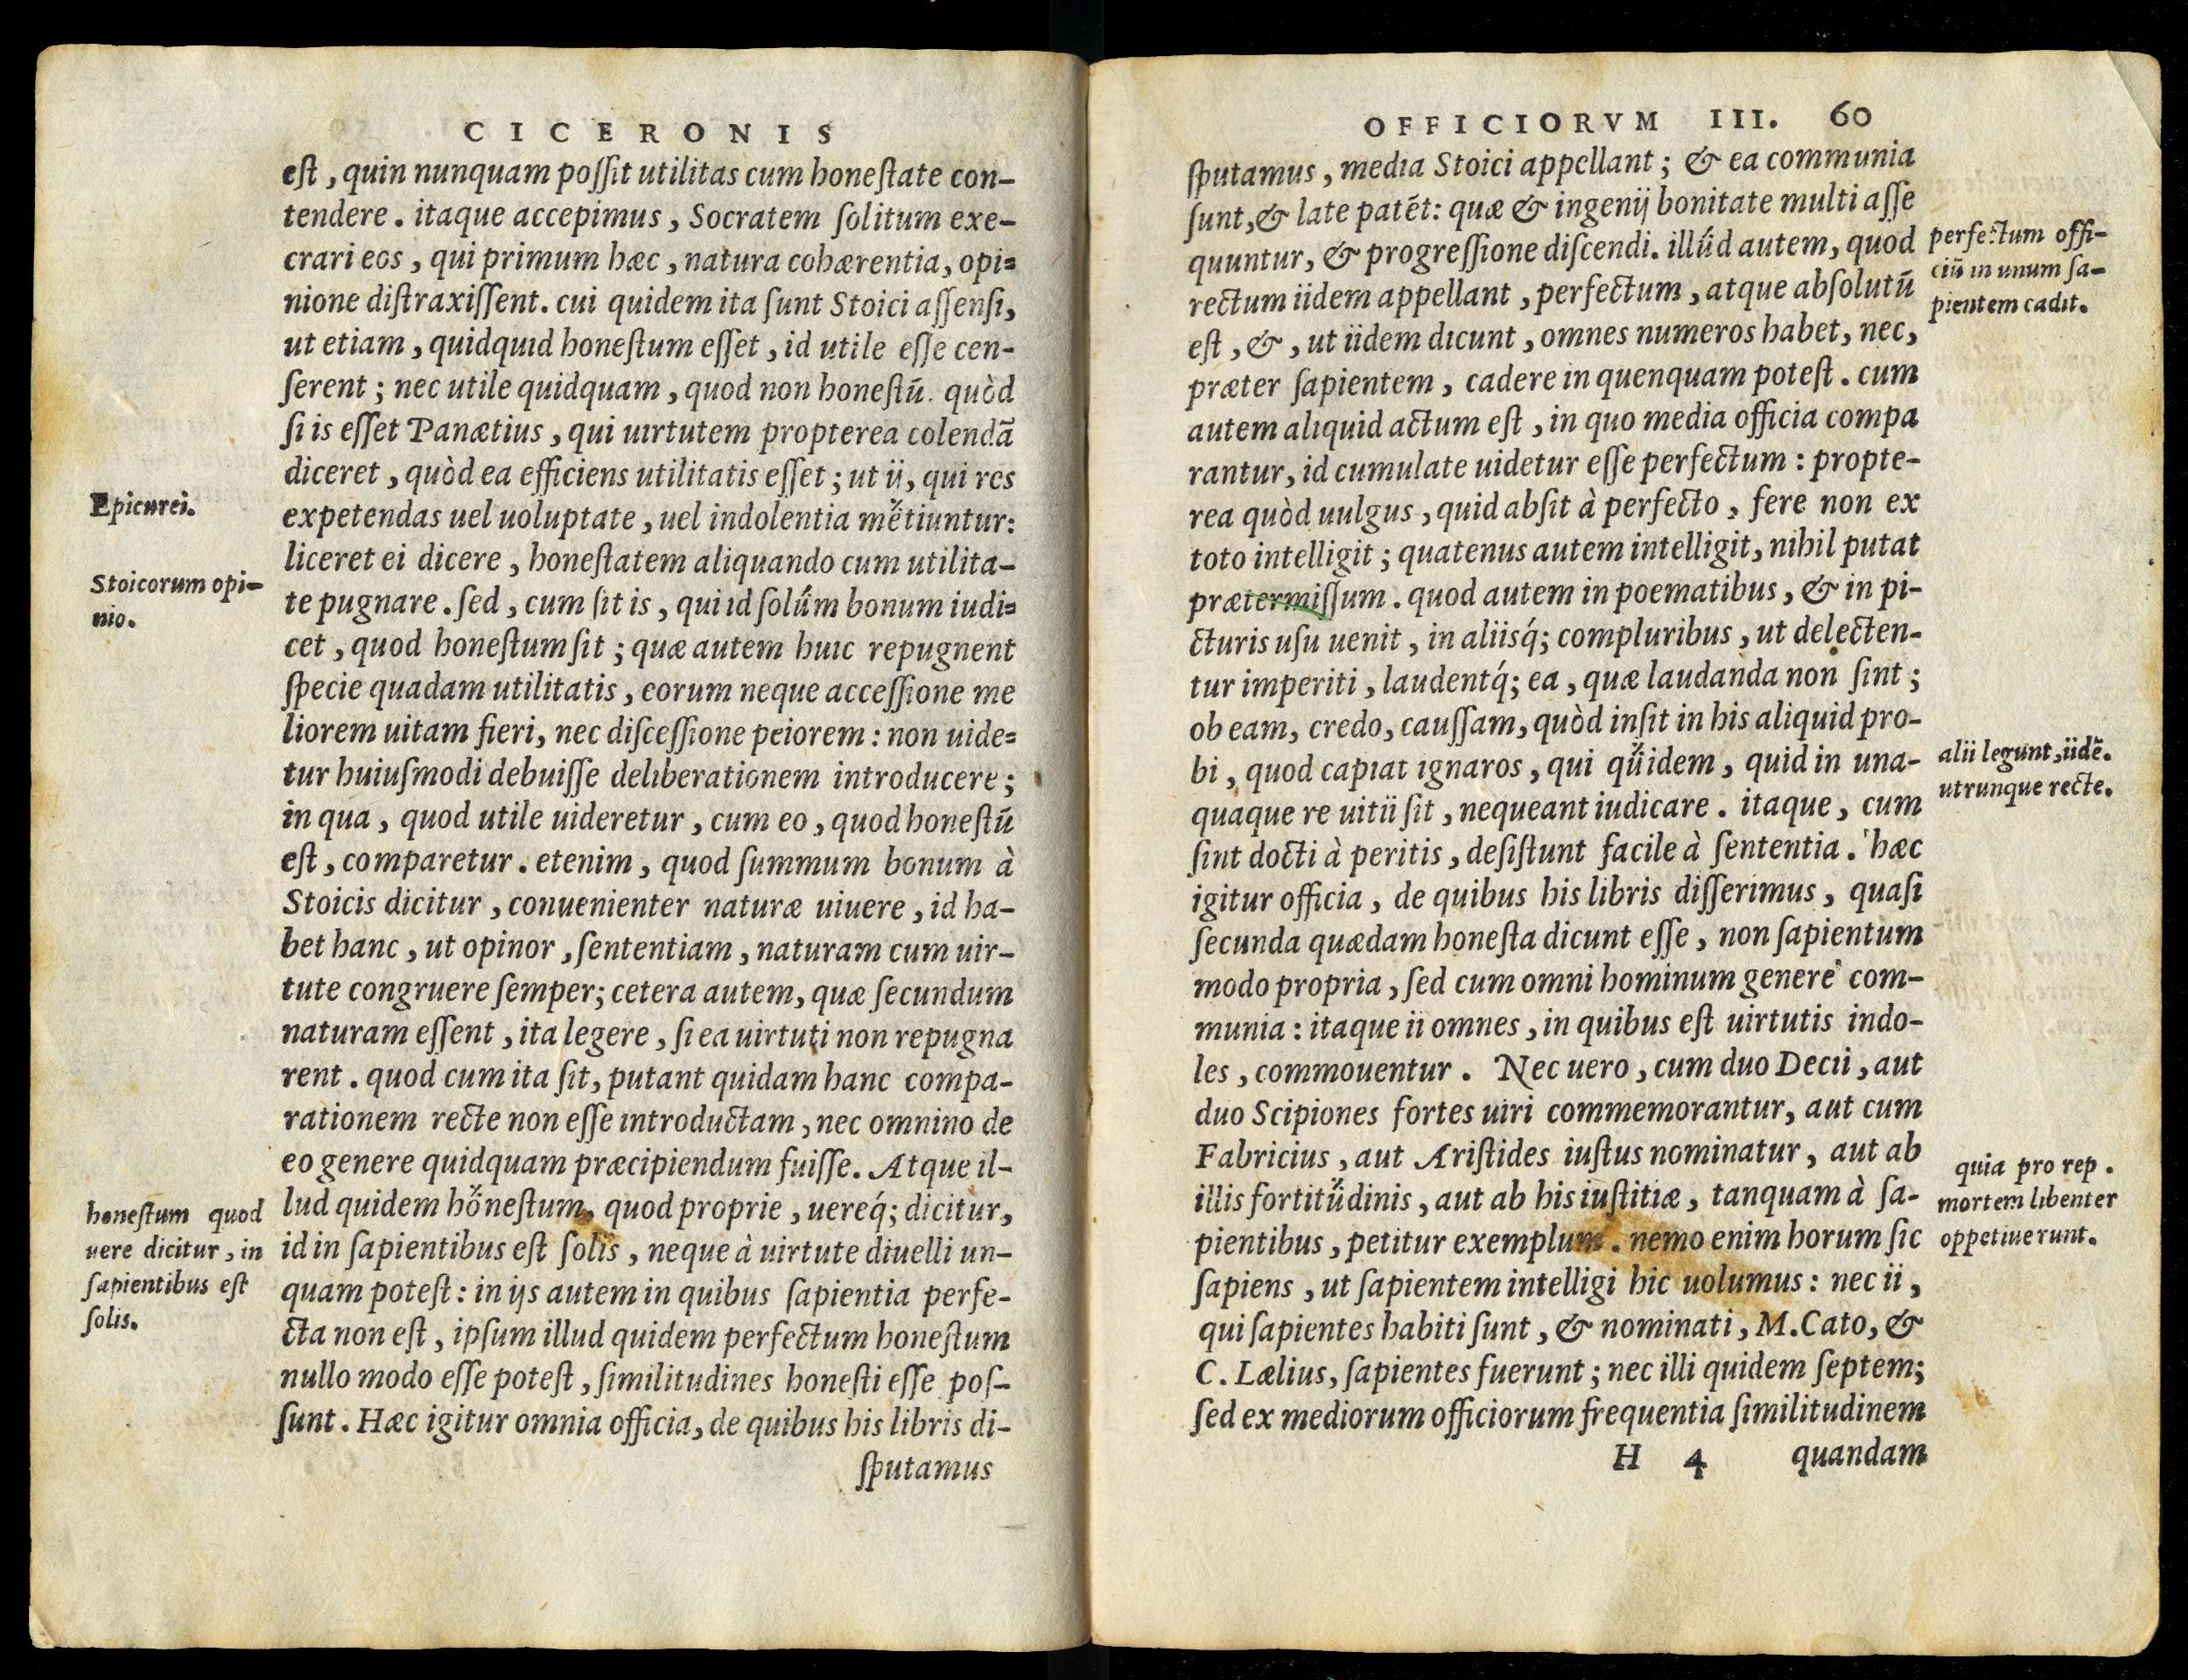 CICERONIS
est, quin nunquam possit utilitas cum honestate con-
tendere. itaque accepimus, Socratem solitum exe-
crari eos, qui primum hæc, natura cohærentia, opi-
nione distraxissent. cui quidem ita sunt Stoici assensi,
ut etiam, quidquid honestum esset, id utile esse cen-
serent; nec utile quidquam, quod non honestũ. quòd
si is esset Panætius, qui uirtutem propterea colendã
diceret, quòd ea efficiens utilitatis esset; ut ij, qui res
Epicurei.
expetendas uel uoluptate, uel indolentia metiuntur:
liceret ei dicere, honestatem aliquando cum utilita-
Stoicorum opi-
nio.
te pugnare. sed, cum sit is, qui id solúm bonum iudi-
cet, quod honestum sit; quæ autem huic repugnent
specie quadam utilitatis, eorum neque accessione me
liorem uitam fieri, nec discessione peiorem: non uide-
tur huiusmodi debuisse deliberationem introducere;
in qua, quod utile uideretur, cum eo, quod honestũ
est, comparetur. etenim, quod summum bonum à
Stoicis dicitur, conuenienter naturæ uiuere, id ha-
bet hanc, ut opinor, sententiam, naturam cum uir-
tute congruere semper; cetera autem, quæ secundum
naturam essent, ita legere, si ea uirtuti non repugna
rent. quod cum ita sit, putant quidam hanc compa-
rationem recte non esse introductam, nec omnino de
eo genere quidquam præcipiendum fuisse. Atque il-
honestum quod
uere dicitur, in
sapientibus est
solis.
lud quidem honestum, quod proprie, uereq́; dicitur,
id in sapientibus est solis, neque à uirtute diuelli un-
quam potest: in ijs autem in quibus sapientia perfe-
cta non est, ipsum illud quidem perfectum honestum
nullo modo esse potest, similitudines honesti esse pos-
sunt. Hæc igitur omnia officia, de quibus his libris di-
sputamus
OFFICIORVM III. 60
sputamus, media Stoici appellant; & ea communia
sunt, & late patẽt: quæ & ingenij bonitate multi asse
quuntur, & progressione discendi. illúd autem, quod
perfectum offi-
ciũ in unum sa-
pientem cadit.
rectum iidem appellant, perfectum, atque absolutũ
est, &, ut iidem dicunt, omnes numeros habet, nec,
præter sapientem, cadere in quenquam potest. cum
autem aliquid actum est, in quo media officia compa
rantur, id cumulate uidetur esse perfectum: propte-
rea quòd uulgus, quid absit à perfecto, fere non ex
toto intelligit; quatenus autem intelligit, nihil putat
prætermissum. quod autem in poematibus, & in pi-
cturis usu uenit, in aliisq́; compluribus, ut delecten-
tur imperiti, laudentq́; ea, quæ laudanda non sint;
ob eam, credo, caussam, quòd insit in his aliquid pro-
alii legunt, iidẽ.
utrunque recte.
bi, quod capiat ignaros, qui quidem, quid in una-
quaque re uitii sit, nequeant iudicare. itaque, cum
sint docti à peritis, desistunt facile à sententia. hæc
igitur officia, de quibus his libris disserimus, quasi
secunda quædam honesta dicunt esse, non sapientum
modo propria, sed cum omni hominum genere com-
munia: itaque ii omnes, in quibus est uirtutis indo-
les, commouentur. Nec uero, cum duo Decii, aut
duo Scipiones fortes uiri commemorantur, aut cum
Fabricius, aut Aristides iustus nominatur, aut ab
quia pro rep.
mortem libenter
oppetiuerunt.
illis fortitudinis, aut ab his iustitiæ, tanquam à sa-
pientibus, petitur exemplum. nemo enim horum sic
sapiens, ut sapientem intelligi hic uolumus: nec ii,
qui sapientes habiti sunt, & nominati, M.Cato, &
C. Lælius, sapientes fuerunt; nec illi quidem septem;
sed ex mediorum officiorum frequentia similitudinem
H 4 quandam